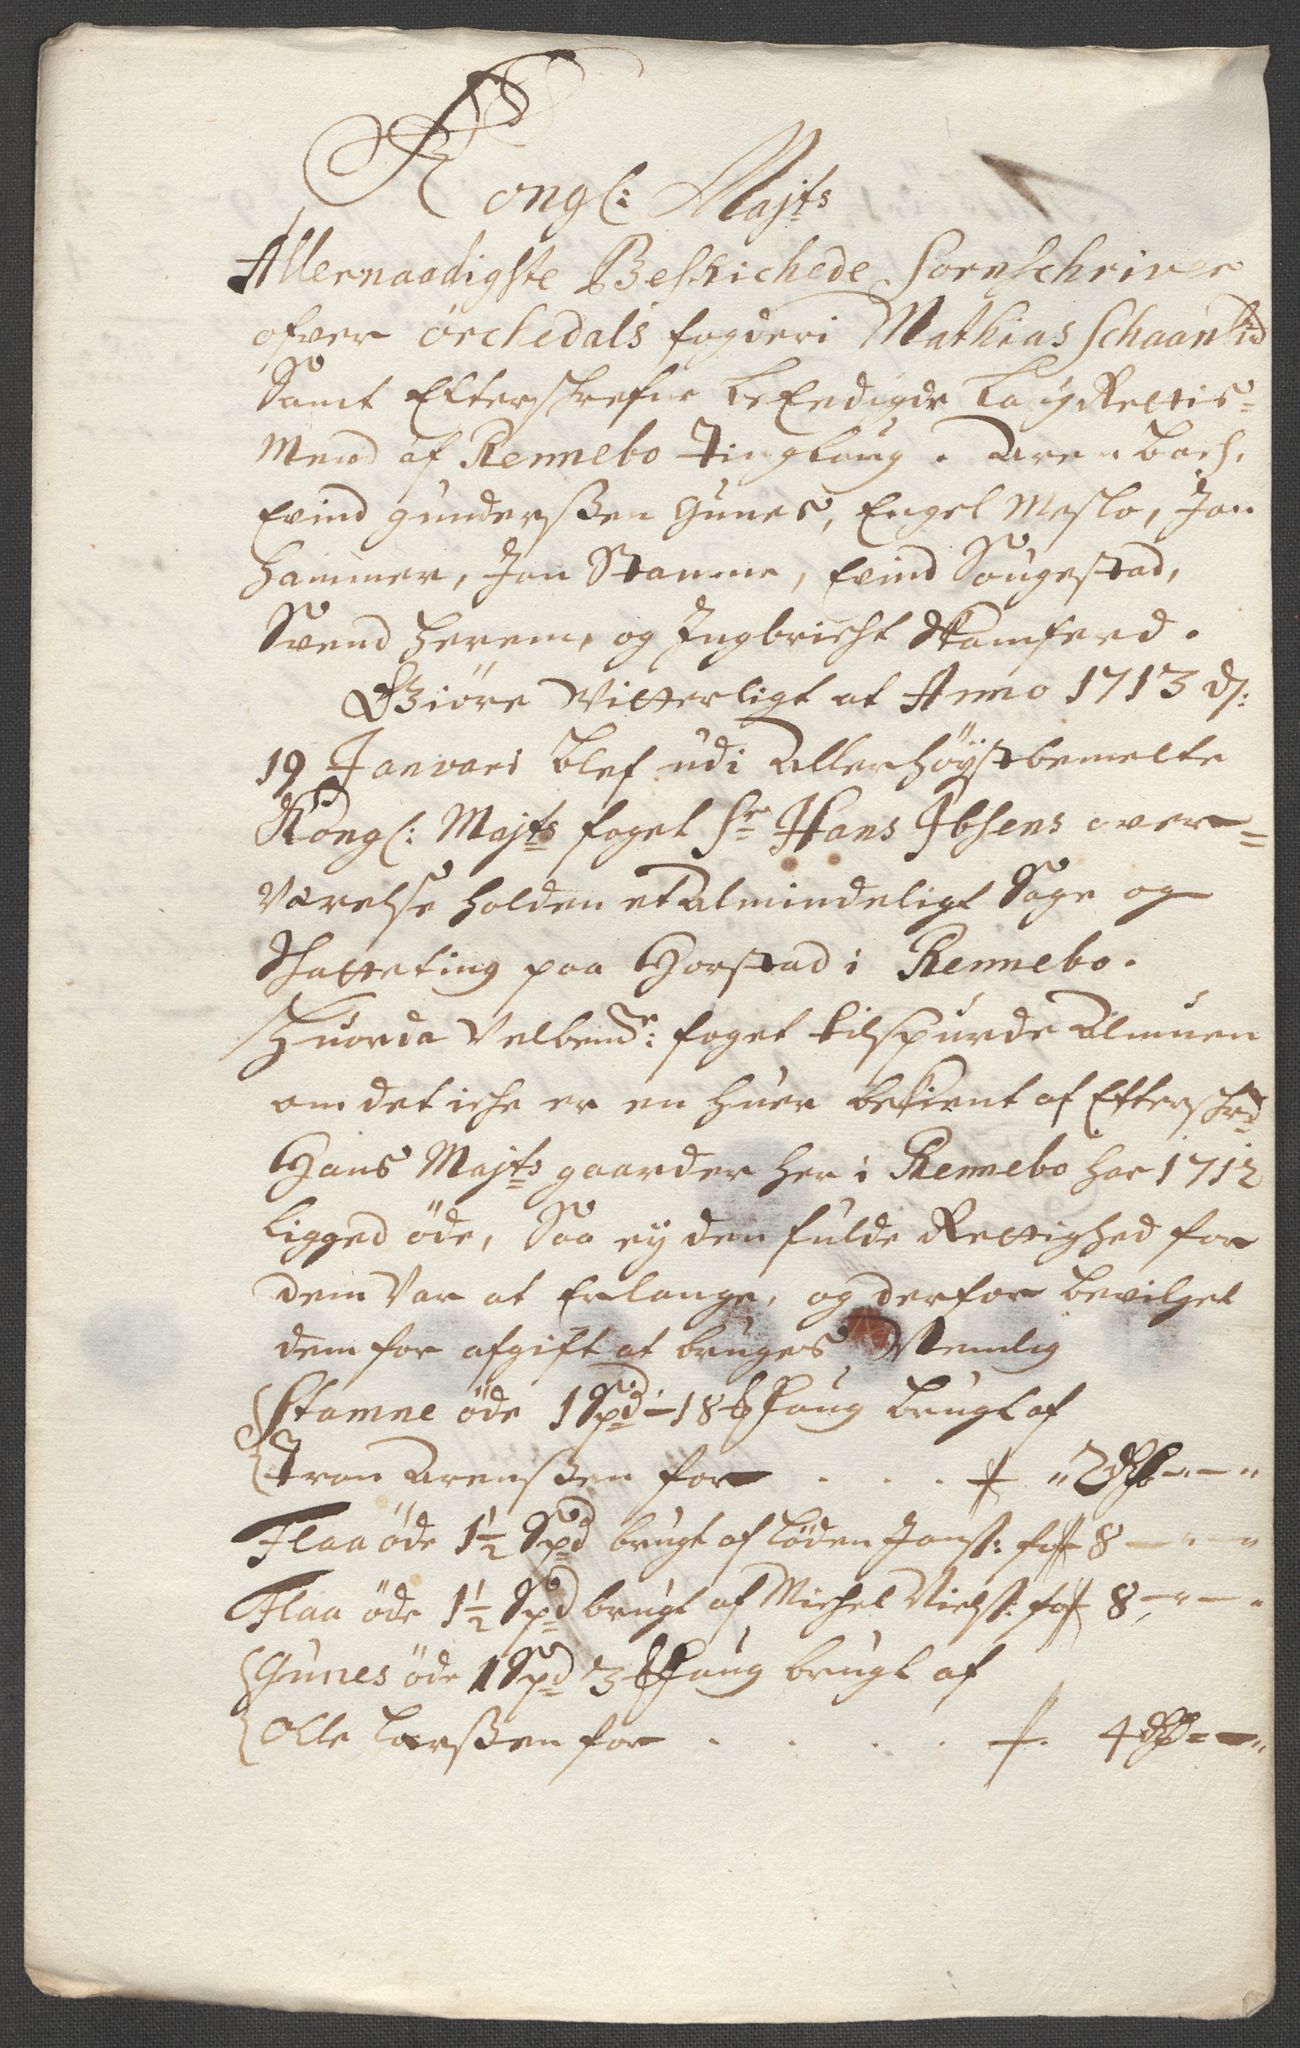 Kongl: Majts
Allernaadigste Beskichede Sorenschriver
ofver örchedals fogderi Mathias Schaanlid
Samt Efterskrefne beEndigde LaugRettis=
Mend af Rennebo Tinglaug. Aren Bach,
Evind gunderßen Gunes, Engel Meslo, Jon
hammer, Jon Stamne, Evind Sougestad,
Svend Herrem, og Ingbricht Skamferd.
Giöre Vitterligt at Anno 1713 d:
19 Janvari blef udi Allerhöÿstbemelte
Kongl: Majts foget Sr Hans Ibsens over=
Værelse holden et Almindeligt Sage og
Skatteting paa Horstad i Rennebo.
Huorda Velbemte: foget tilspurde Almuen
om det iche er en huer bekient af Efterskrd
Hans Majts gaarder her i Rennebo har 1712
ligged öde, Saa ey den fulde Rettighed for
dem Var at Erlange, og derfor bevilget
dem for afgift at bruges Nemlig
Stamne öde 1 Spd - 18 Maug brugt af
Tron Arenßen for . . . . 2 ß - "
Flaa öde 1½ Spd brugt af Löden Jonß: for 8 - " - "
Flaa öde 1½ Spd brugt af Michel Nielß: for 8 - " - "
Gunes öde 1 Spd 3 Maug brugt af
Olle Larßen for . . . . . 4 ß - "